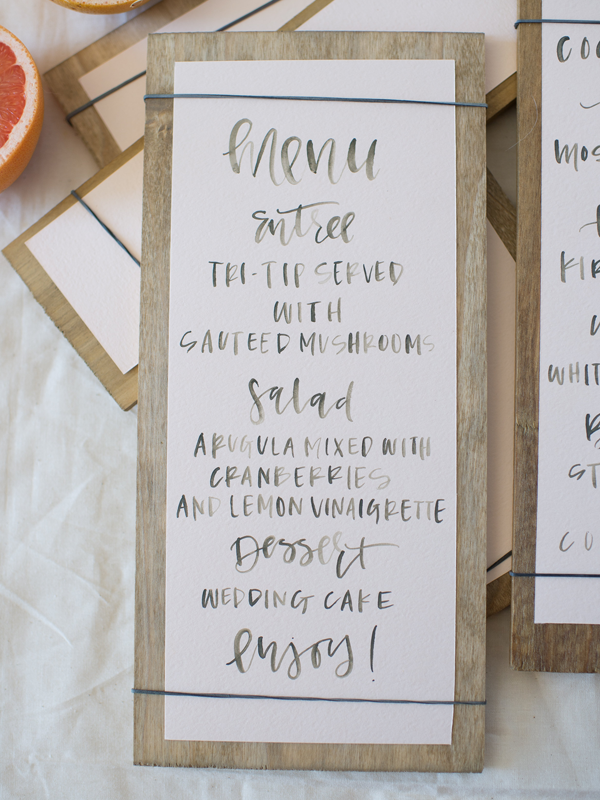 menu
entree
TRI-TIP SERVED
WITH
SAUTEED MUSHROOMS
salad
ARUGULA MIXED WITH
CRANBERRIES
AND LEMON VINAIGRETTE
Dessert
WEDDING CAKE
enjoy!